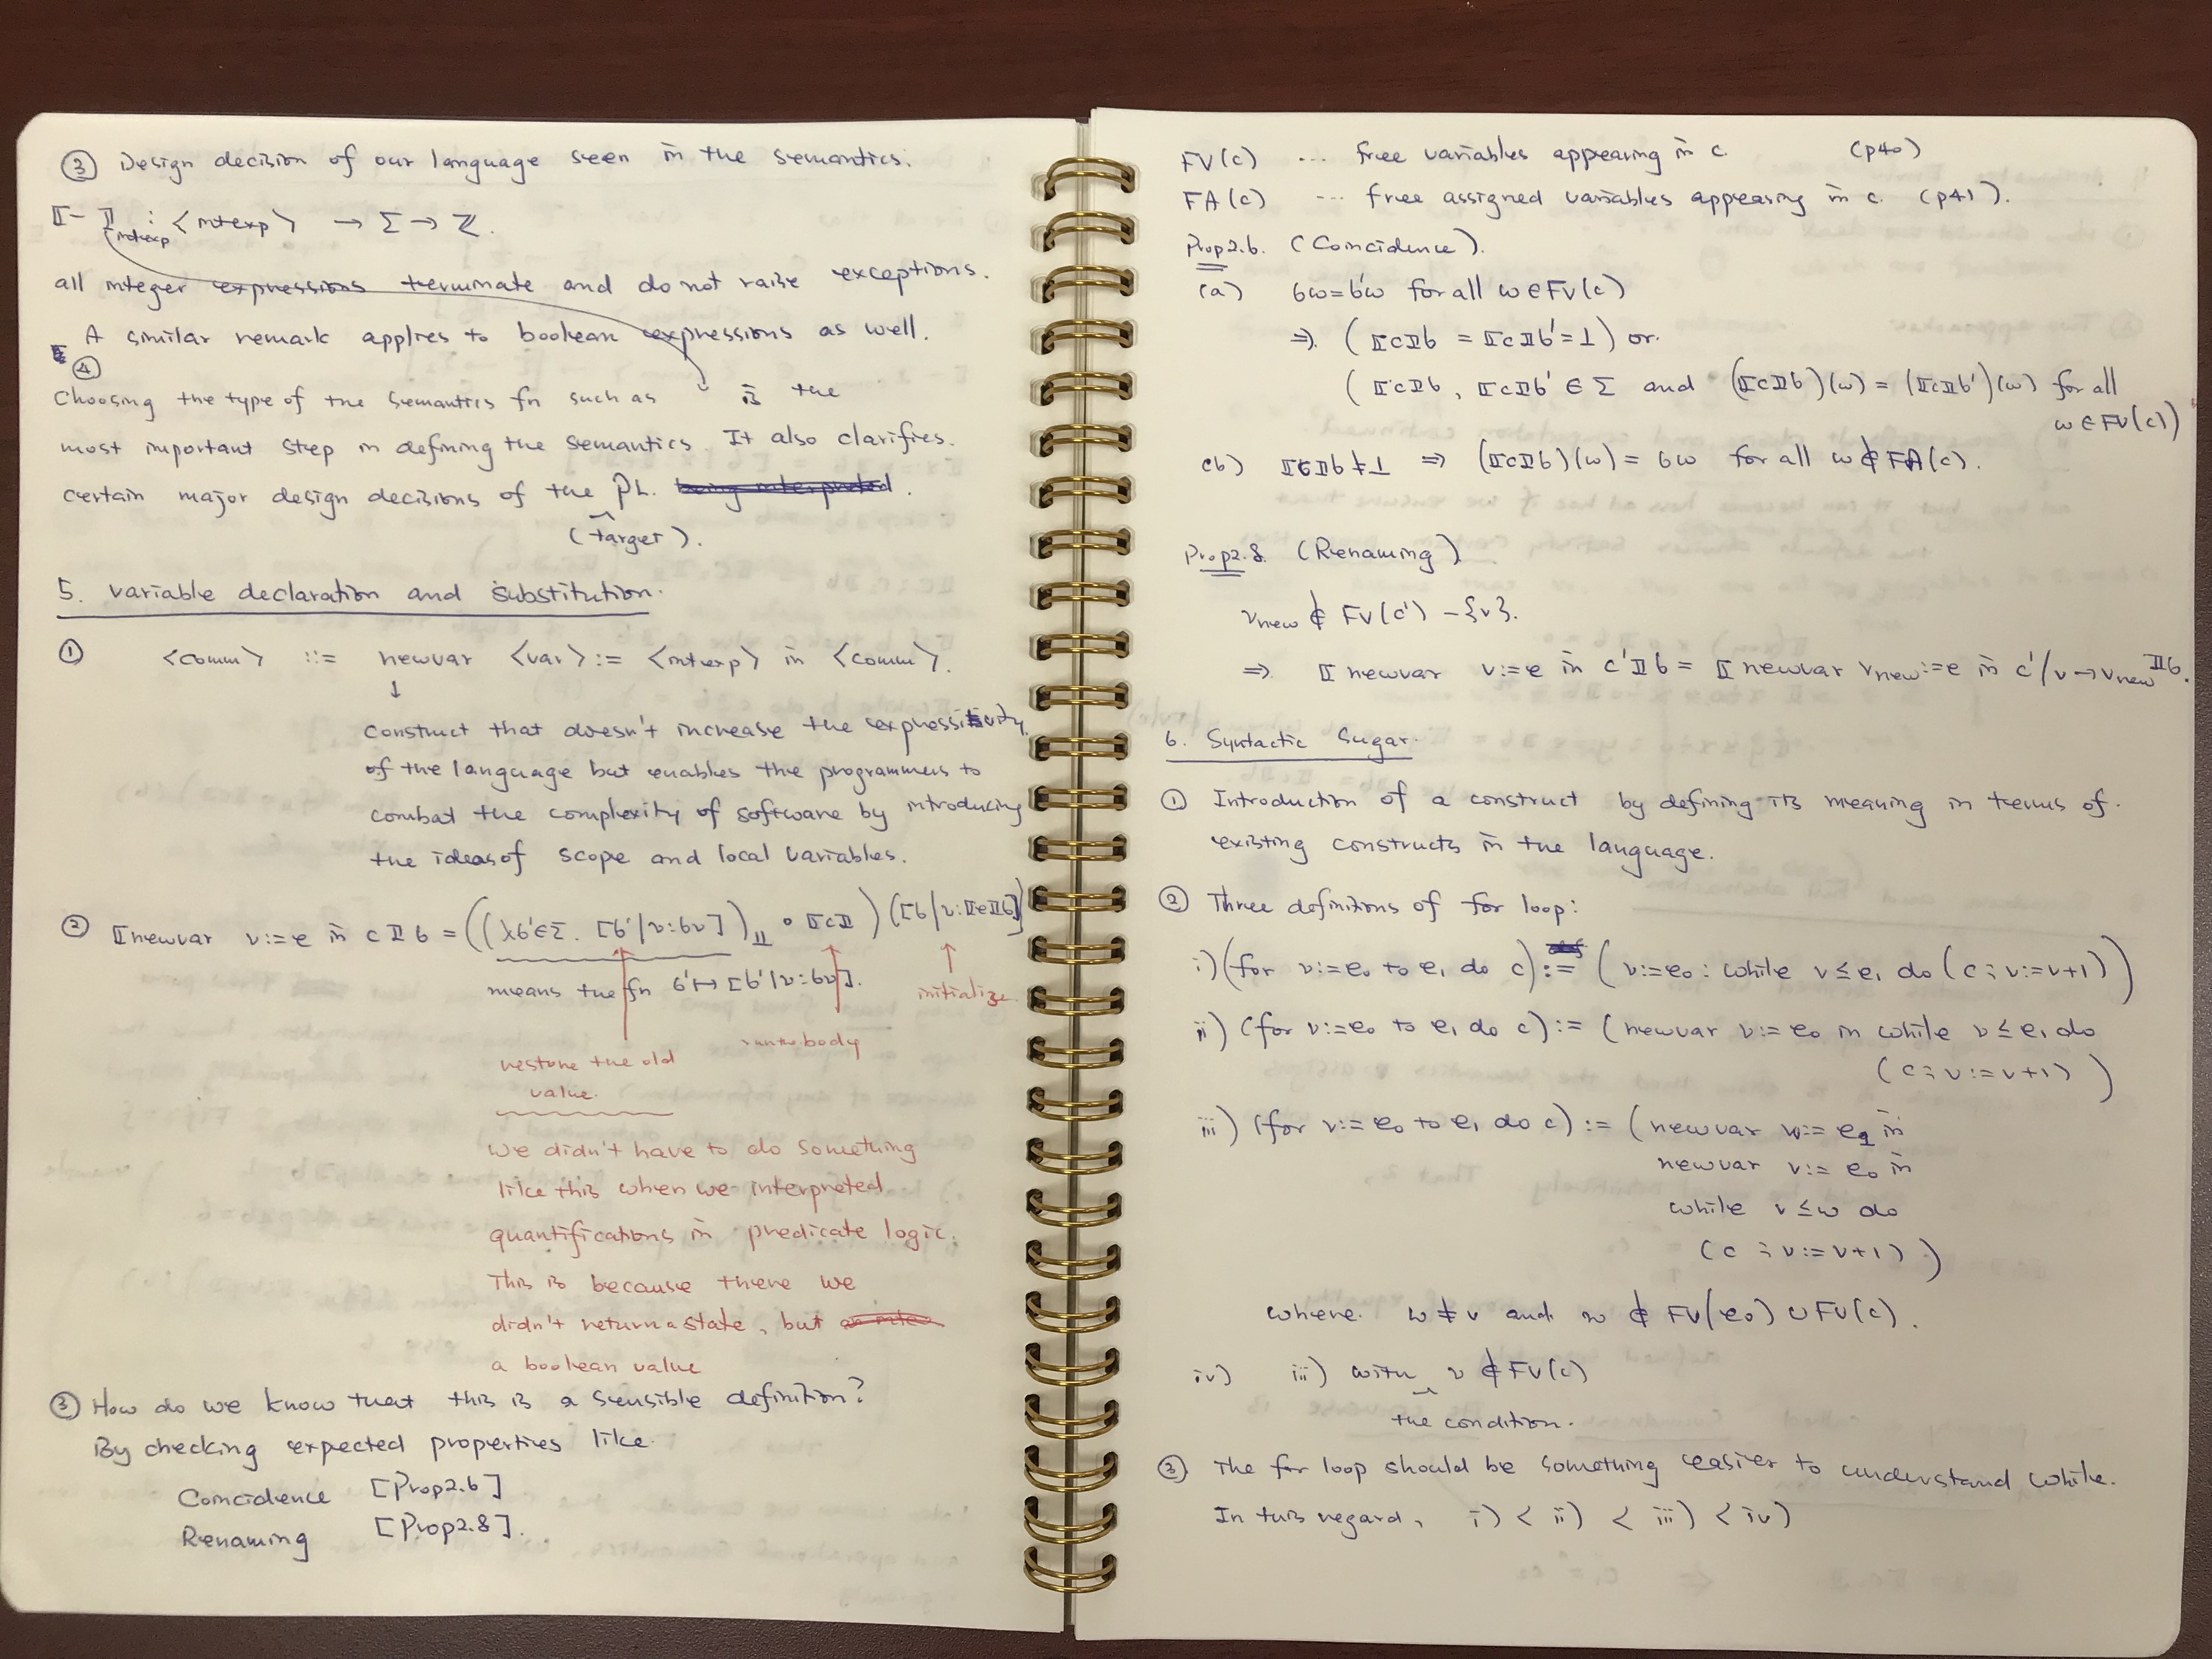 ③ Design decision of our language seen in the semantics.
⟦-⟧intexp : <intexp> → Σ → ℤ.
all integer expressions terminate and do not raise exceptions.
A similar remark applies to boolean expressions as well.
④
Choosing the type of the semantics fn such as is the
most important step in defining the semantics. It also clarifies.
certain major design decisions of the PL.
(target).
5. variable declaration and substitution.
① <comm> ::= newvar <var> := <intexp> in <comm>.
↓
construct that doesn't increase the expressivity
of the language but enables the programmers to
combat the complexity of software by introducing
the ideas of scope and local variables.
② ⟦newvar v:=e in c⟧σ = ((λσ'∈Σ. [σ'|v:σv])⊥⊥ ∘ ⟦c⟧)([σ|v:⟦e⟧σ])
means the fn σ'↦[σ'|v:σv].
initialize.
run the body
restore the old
value.
we didn't have to do something
like this when we interpreted
quantifications in predicate logic.
This is because there we
didn't return a state, but
a boolean value
③ How do we know that this is a sensible definition?
By checking expected properties like.
Coincidence [Prop2.6]
Renaming [Prop2.8].
FV(c) ... free variables appearing in c. (p40)
FA(c) ... free assigned variables appearing in c. (p41).
Prop2.6. (Coincidence).
(a) σw=σ'w for all w∈FV(c)
⇒. (⟦c⟧σ = ⟦c⟧σ'=⊥) or.
(⟦c⟧σ, ⟦c⟧σ' ∈ Σ and (⟦c⟧σ)(w) = (⟦c⟧σ')(w) for all
w∈FV(c))
(b) ⟦c⟧σ≠⊥ ⇒ (⟦c⟧σ)(w) = σw for all w∉FA(c).
Prop2.8. (Renaming)
vnew ∉ FV(c') -{v}.
⇒. ⟦newvar v:=e in c'⟧σ = ⟦newvar vnew:=e in c'/v→vnew⟧σ.
6. Syntactic Sugar.
① Introduction of a construct by defining its meaning in terms of.
existing constructs in the language.
② Three definitions of for loop:
i) (for v:=e₀ to e₁ do c) := (v:=e₀ ; while v≤e₁ do (c; v:=v+1))
ii) (for v:=e₀ to e₁ do c) := (newvar v:=e₀ in while v≤e₁ do
(c; v:=v+1))
iii) (for v:=e₀ to e₁ do c) := (newvar w:=e₁ in
newvar v:=e₀ in
while v≤w do
(c ; v:=v+1))
where. w≠v and w ∉ FV(e₀) ∪ FV(c).
iv) iii) with v ∉ FV(c)
the condition.
③ The for loop should be something easier to understand while.
In this regard, i) < ii) < iii) < iv)